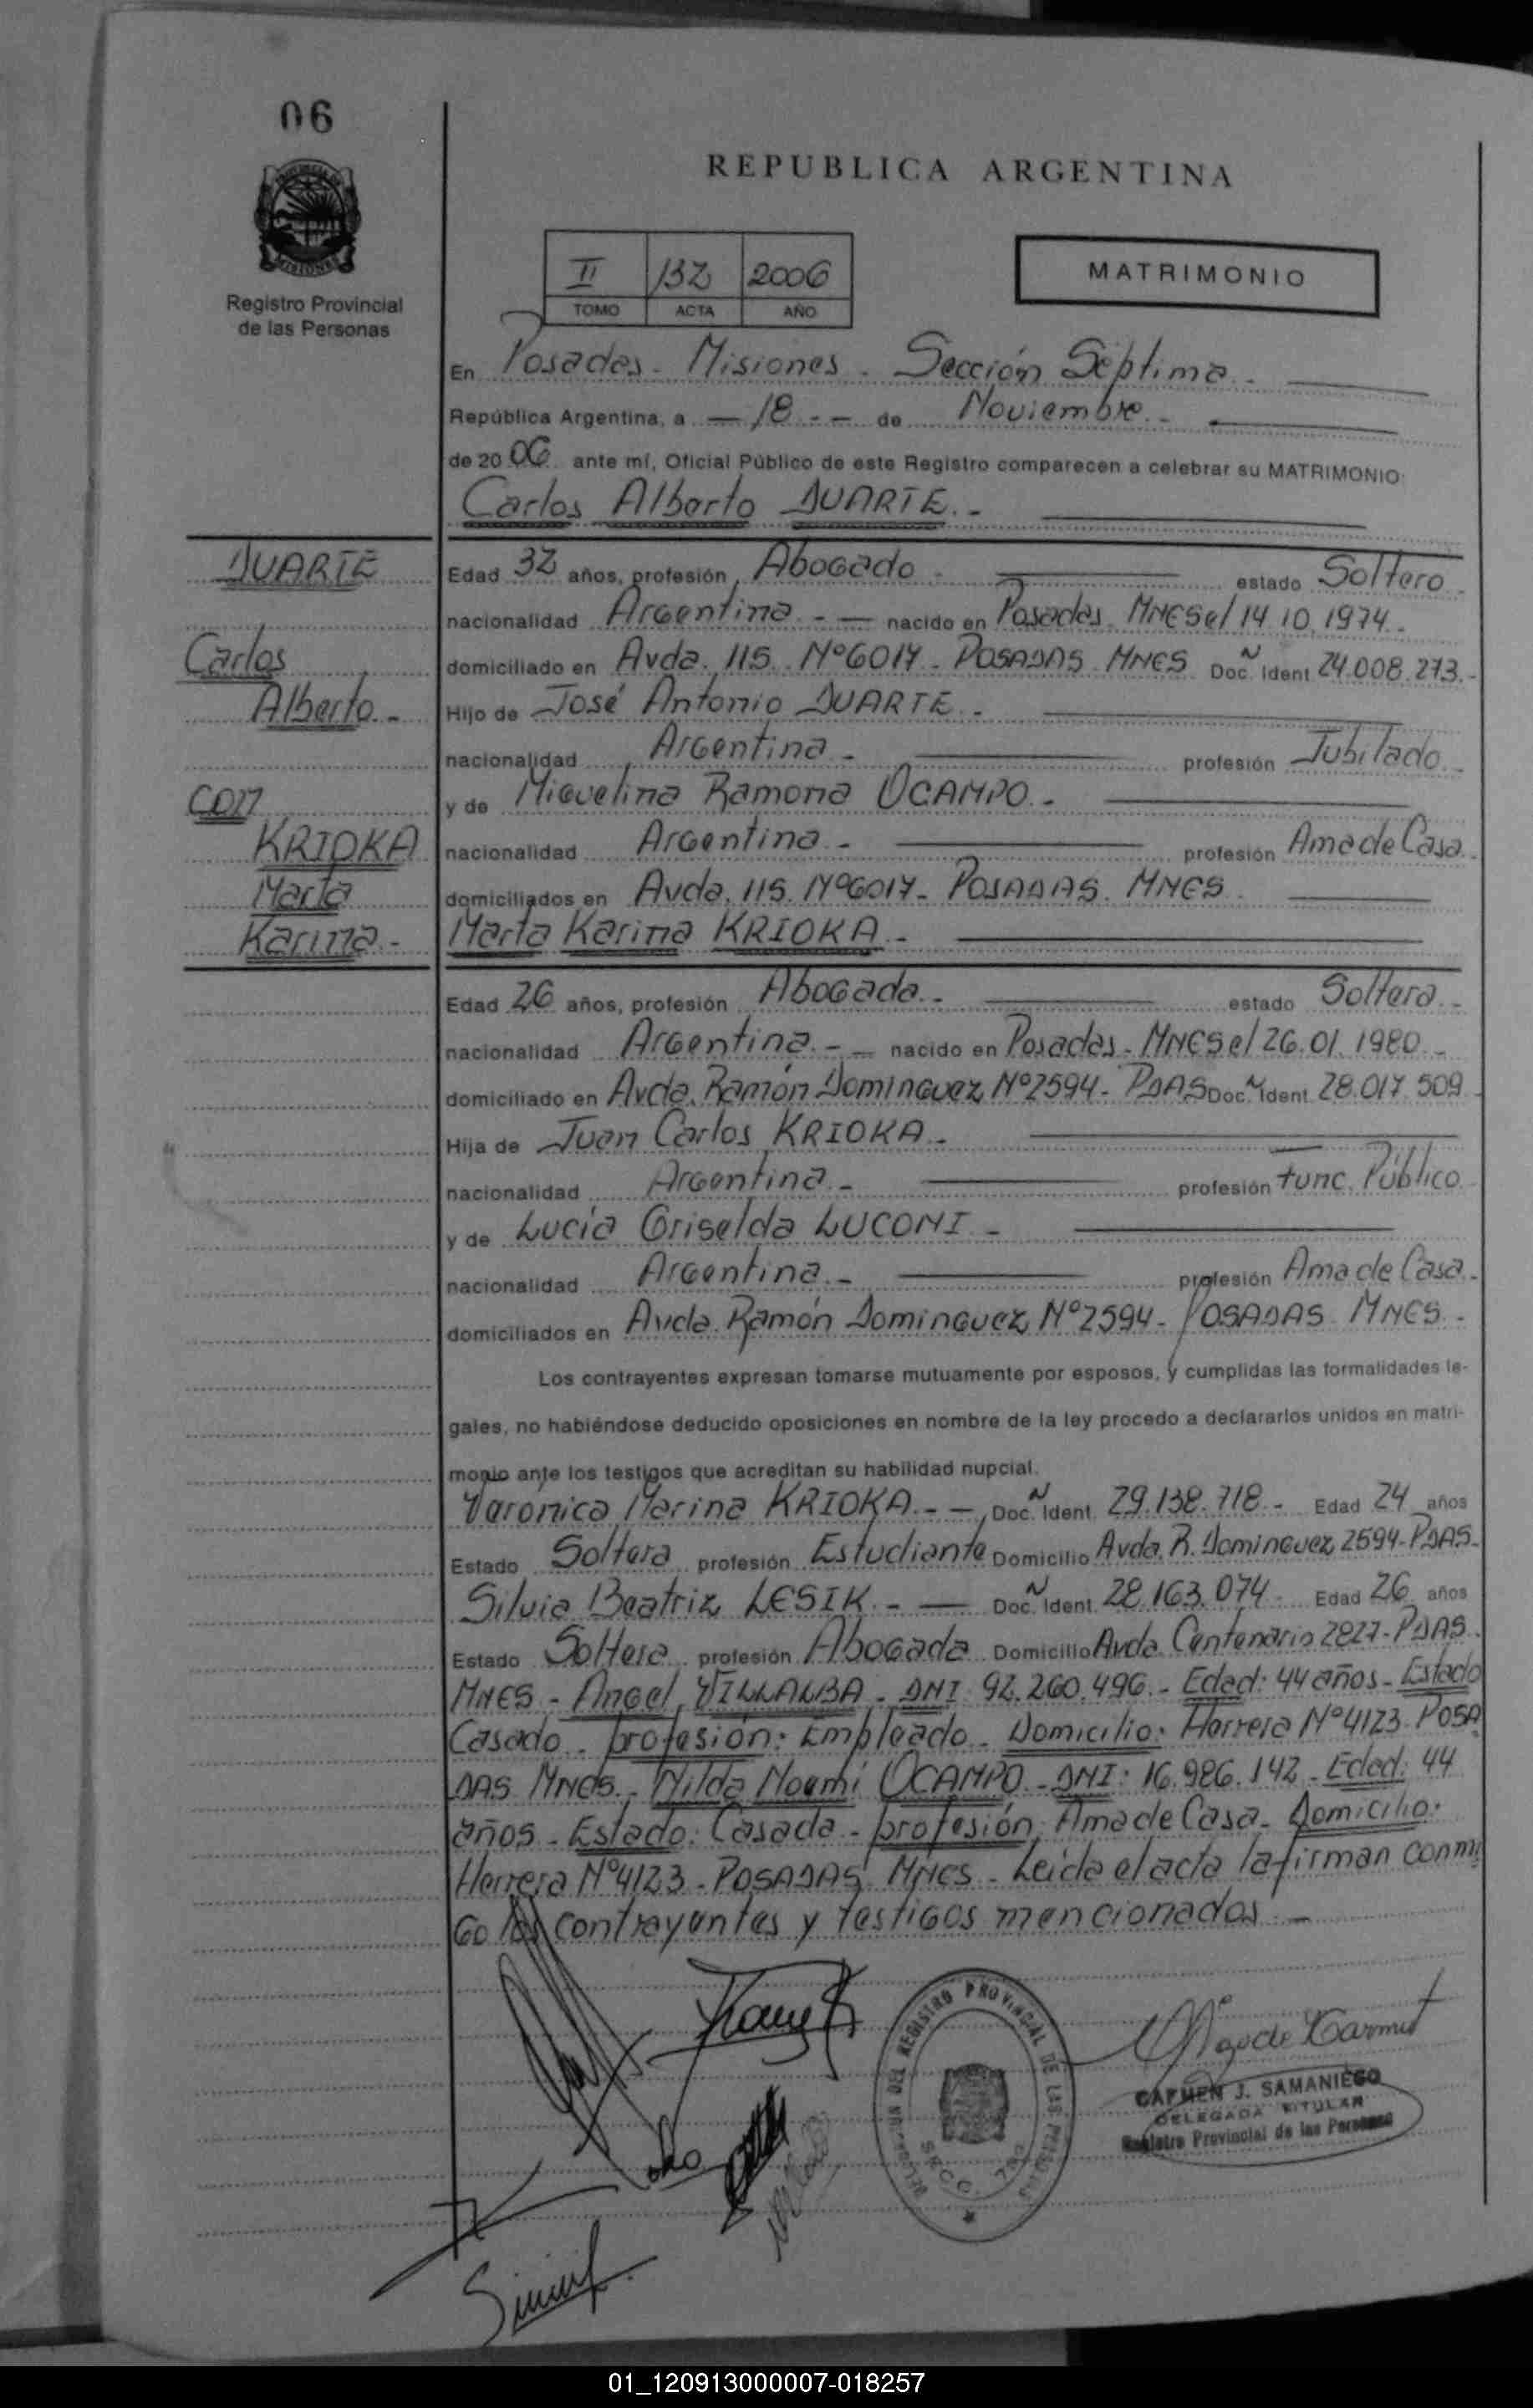 06
REPUBLICA ARGENTINA
MISIONES
Registro Provincial
de las Personas
II 132 2006
TOMO ACTA AÑO
MATRIMONIO
En Posadas - Misiones - Sección Séptima -
República Argentina, a - 18 - - de Noviembre -
de 20 06 ante mí, Oficial Público de este Registro comparecen a celebrar su MATRIMONIO:
Carlos Alberto DUARTE. -
DUARTE
Carlos
Alberto. -
con
KRIOKA
Marta
Karina. -
Edad 32 años, profesión Abogado - estado Soltero -
nacionalidad Argentina - - nacido en Posadas. MNES el 14.10.1974. -
domiciliado en Avda. 115. Nº6017 - POSADAS. MNES Doc. N Ident 24.008.273. -
Hijo de José Antonio DUARTE. -
nacionalidad Argentina - profesión Jubilado. -
y de Miguelina Ramona OCAMPO. -
nacionalidad Argentina - profesión Ama de Casa. -
domiciliados en Avda. 115. Nº6017 - POSADAS. MNES.
Marta Karina KRIOKA. -
Edad 26 años, profesión Abogada. - estado Soltera. -
nacionalidad Argentina. - - nacido en Posadas - MNES el 26.01.1980. -
domiciliado en Avda. Ramón Dominguez Nº2594 - PDAS Doc. N Ident. 28.017.509
Hija de Juan Carlos KRIOKA. -
nacionalidad Argentina. - profesión Func. Público
y de Lucía Griselda LUCONI. -
nacionalidad Argentina. - profesión Ama de Casa. -
domiciliados en Avda. Ramón Dominguez Nº2594 - POSADAS. MNES. -
Los contrayentes expresan tomarse mutuamente por esposos, y cumplidas las formalidades le-
gales, no habiéndose deducido oposiciones en nombre de la ley procedo a declararlos unidos en matri-
monio ante los testigos que acreditan su habilidad nupcial.
Veronica Marina KRIOKA. - - Doc. N Ident. 29.138.718. - Edad 24 años
Estado Soltera profesión Estudiante Domicilio Avda. R. Dominguez 2594 - PDAS -
Silvia Beatriz LESIK. - - Doc. N Ident. 28.163.074 - Edad 26 años
Estado Soltera profesión Abogada Domicilio Avda. Centenario 2827 - PDAS
MNES - Angel VILLALBA - DNI 92.260.496. - Edad: 44 años - Estado
Casado - profesión: Empleado - Domicilio: Herrera Nº4123. POSA
DAS MNES. - Nilda Noemí OCAMPO - DNI: 16.986.142 - Edad: 44
años - Estado: Casada - profesión: Ama de Casa - Domicilio:
Herrera Nº4123 - POSADAS. MNES - Leida el acta la firman conmi
go los contrayentes y testigos mencionados. -
REGISTRO PROVINCIAL DE LAS PERSONAS
SECC. 7ma
CARMEN J. SAMANIEGO
DELEGADA TITULAR
Registro Provincial de las Personas
01_120913000007-018257